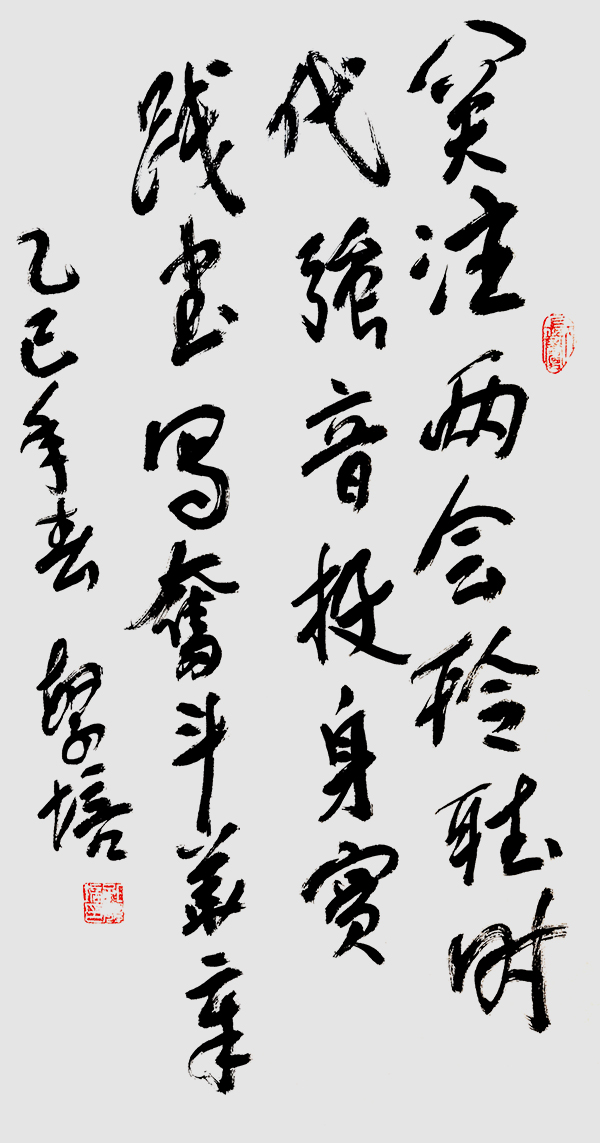 关注两会聆听时
代强音投身实
践书写奋斗华章
乙巳年春 培